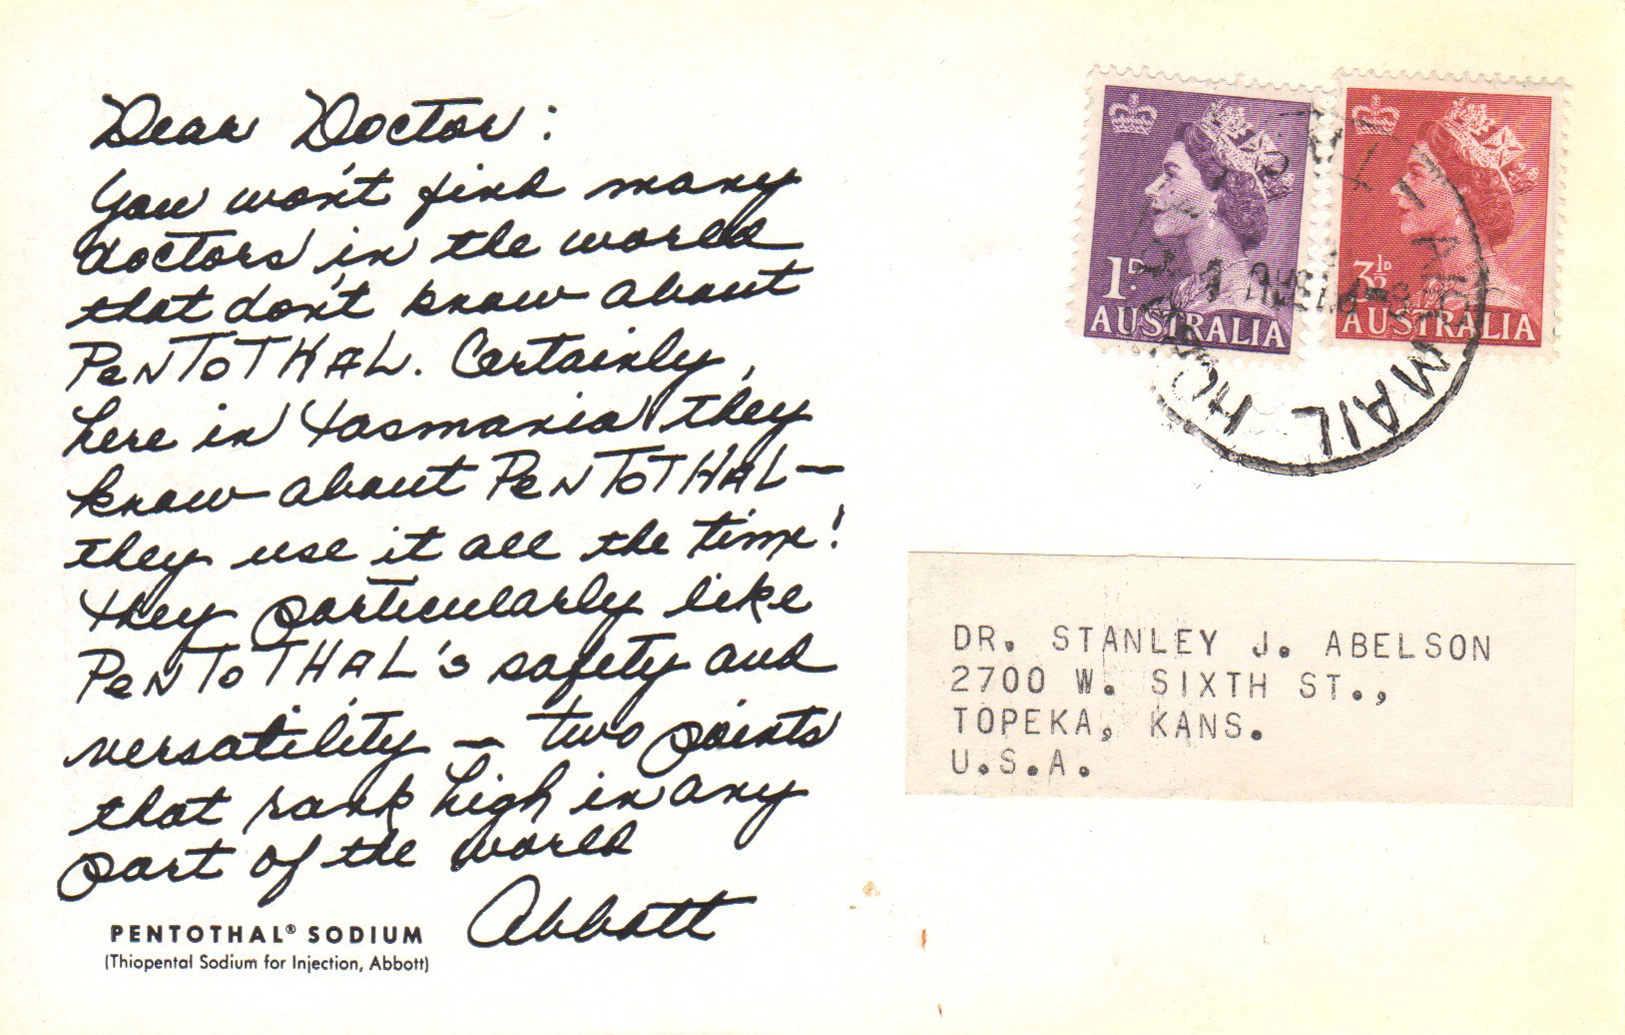 Dear Doctor:
You won't find many
doctors in the world
that don't know about
PeNToTHAL. Certainly,
here in Tasmania they
know about PeNToTHAL—
they use it all the time!
They particularly like
PeNToTHAL's safety and
versatility — two points
that rank high in any
part of the world
Abbott
PENTOTHAL® SODIUM
(Thiopental Sodium for Injection, Abbott)
1D
AUSTRALIA
3½D
AUSTRALIA
MAIL
DR. STANLEY J. ABELSON
2700 W. SIXTH ST.,
TOPEKA, KANS.
U.S.A.